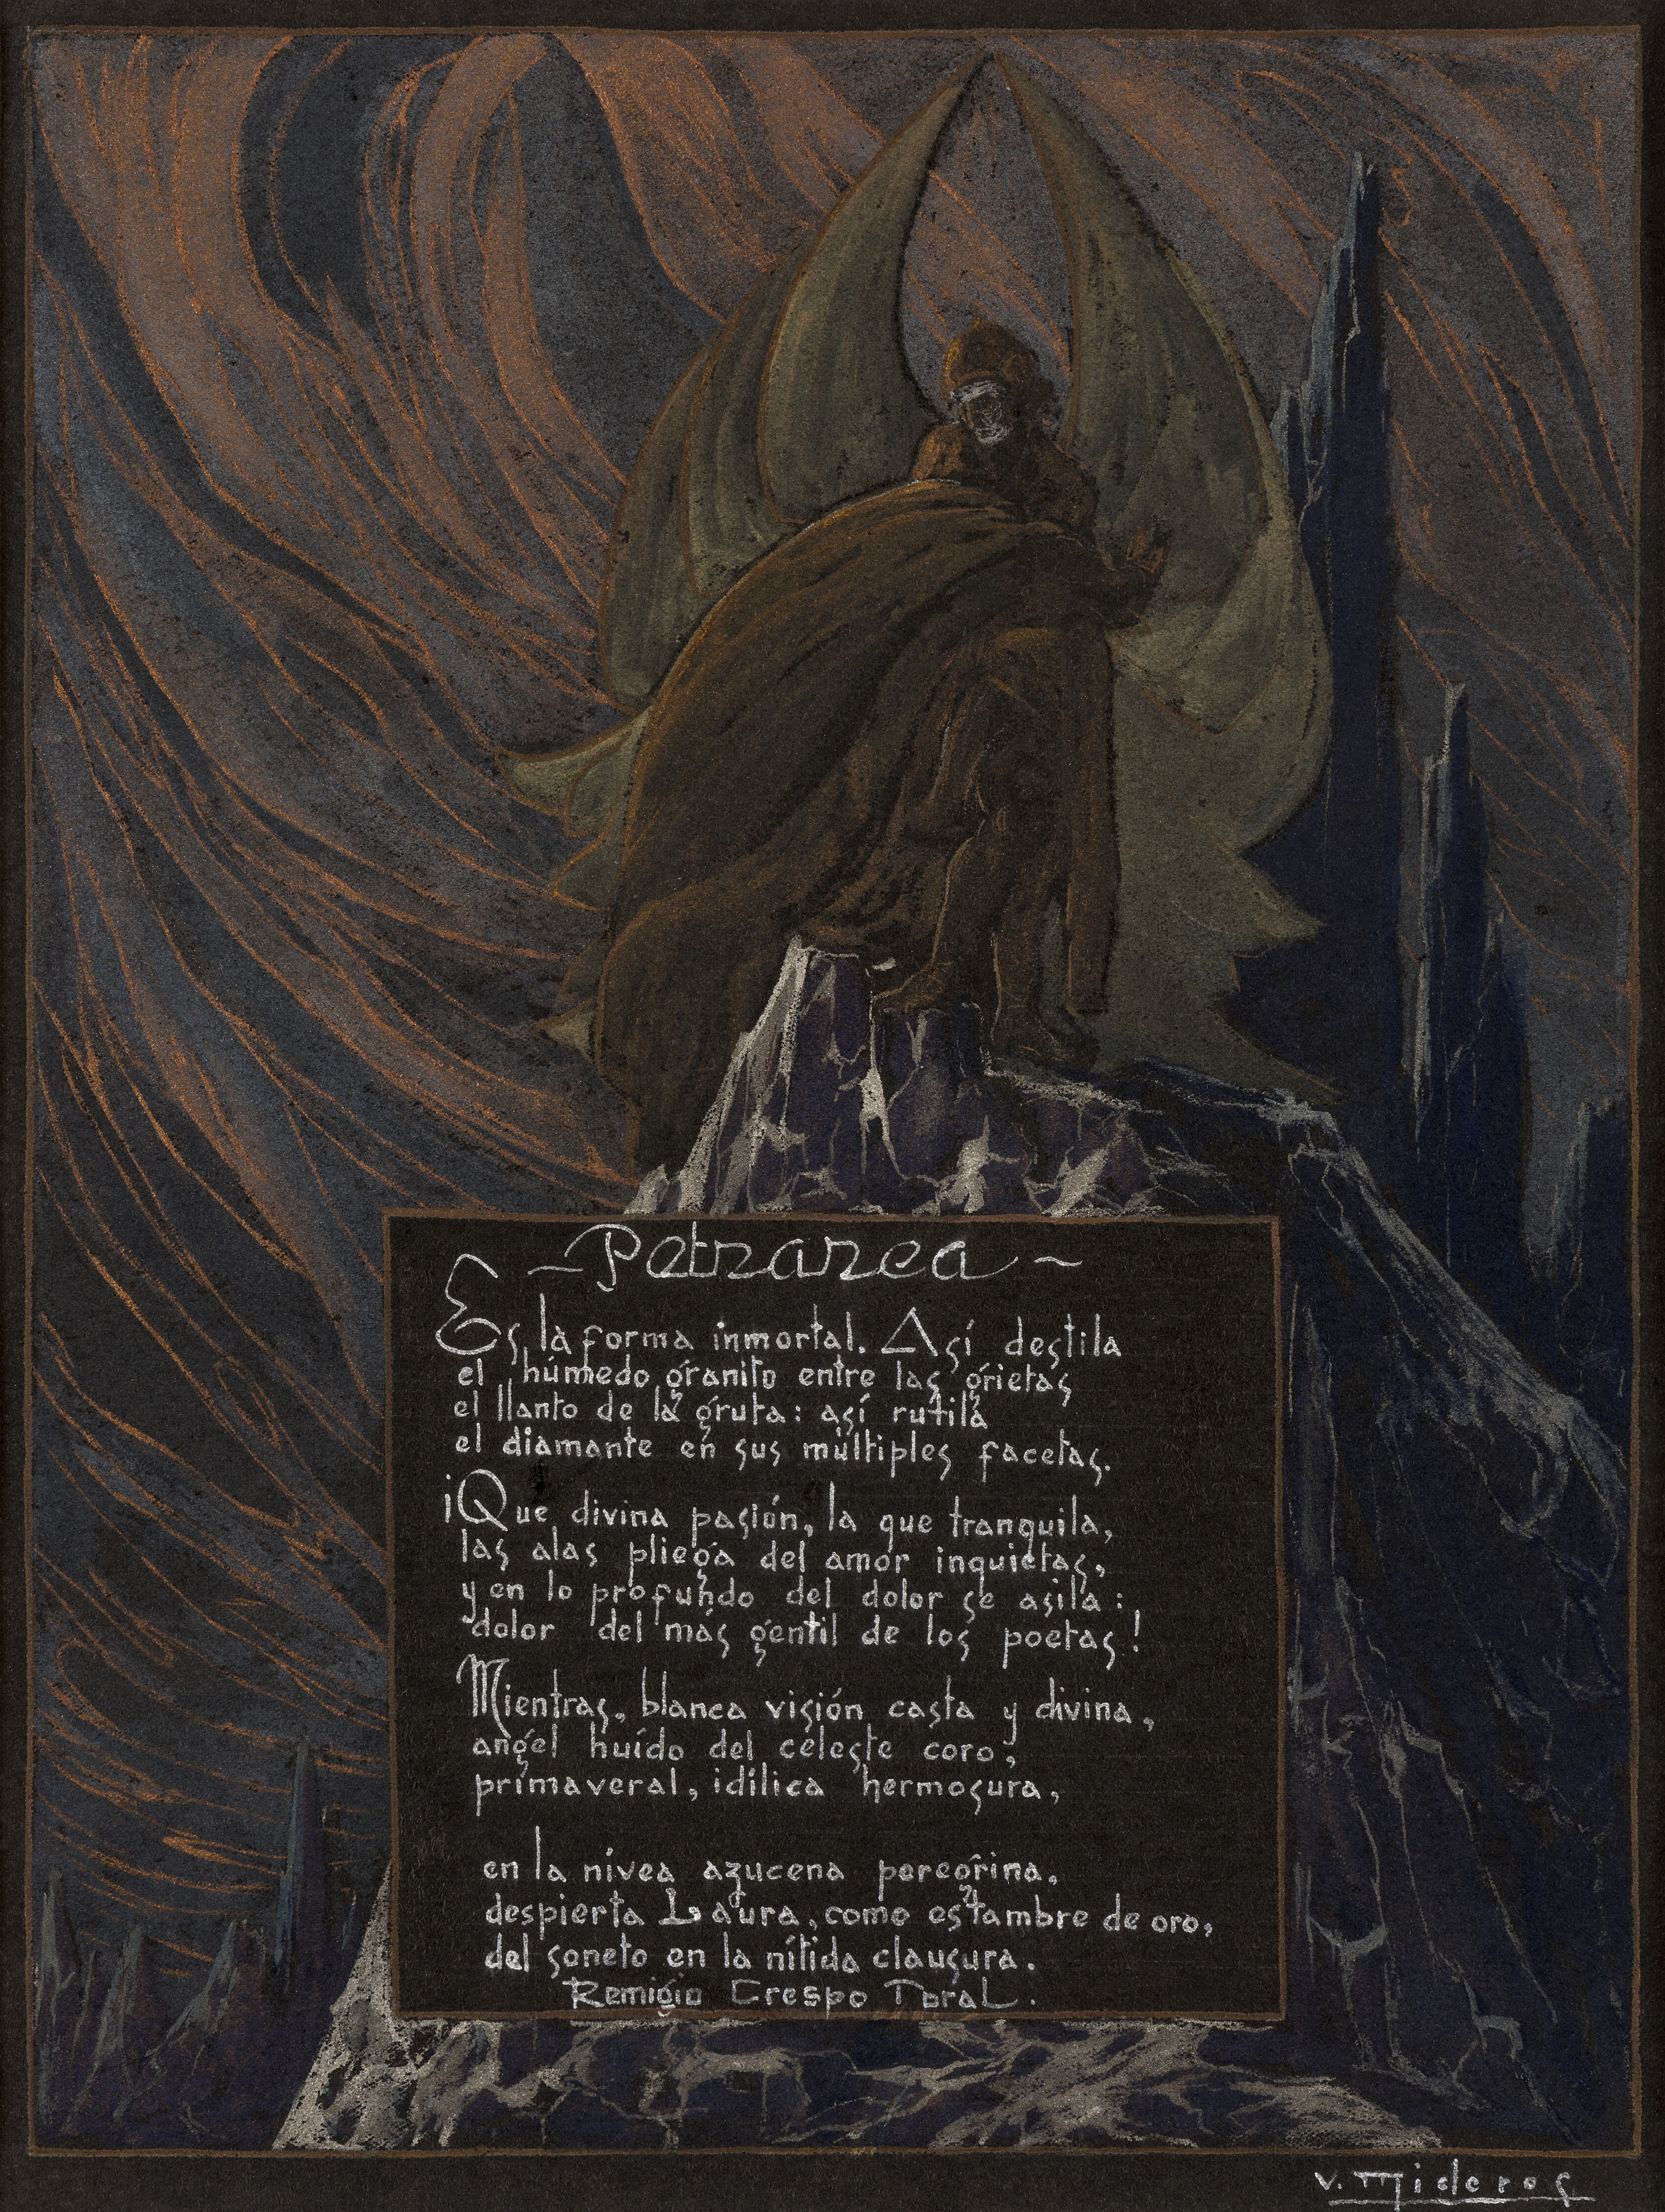 ~ Petrarca ~
Es la forma inmortal. Así destila
el húmedo granito entre las grietas
el llanto de la gruta: así rutila
el diamante en sus múltiples facetas.
¡Que divina pasión, la que tranquila,
las alas pliega del amor inquietas,
y en lo profundo del dolor se asila:
dolor del más gentil de los poetas!
Mientras, blanca visión casta y divina,
angel huído del celeste coro,
primaveral, idílica hermosura,
en la nívea azucena peregrina,
despierta Laura, como estambre de oro,
del soneto en la nítida clausura.
Remigio Crespo Toral.
V. Mideros